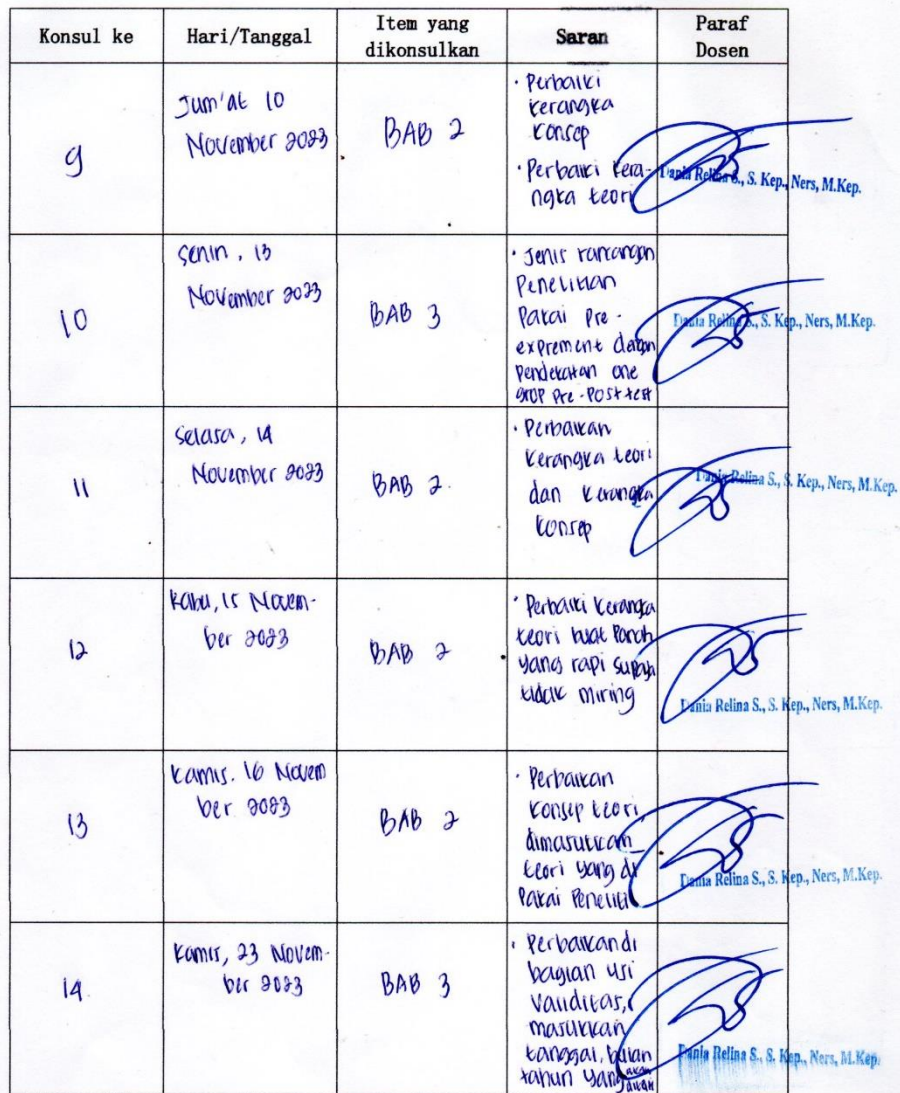 Konsul ke
Hari/Tanggal
Item yang
dikonsulkan
Saran
Paraf
Dosen
9
Jum'at 10
November 2023
BAB 2
• Perbaiki
kerangka
konsep
• Perbaiki kera-
ngka teori
Dania Relina S., S. Kep., Ners, M.Kep.
10
Senin, 13
November 2023
BAB 3
• Jenis rancangan
Penelitian
Pakai pre-
exprement dengan
Pendekatan one
grop Pre-Post test
Dania Relina S., S. Kep., Ners, M.Kep.
11
Selasa, 14
November 2023
BAB 2.
• Perbaikan
kerangka teori
dan kerangka
konsep
Dania Relina S., S. Kep., Ners, M.Kep.
12
Rabu, 15 Novem-
ber 2023
BAB 2
• Perbaiki kerangka
teori buat Panah
yang rapi supaya
tidak miring
Dania Relina S., S. Kep., Ners, M.Kep.
13
Kamis. 16 Novem
ber 2023
BAB 2
• Perbaikan
konsep teori,
dimasukkan
teori yang di
Pakai Peneliti
Dania Relina S., S. Kep., Ners, M.Kep.
14.
Kamis, 23 Novem-
ber 2023
BAB 3
• Perbaikan di
bagian uji
validitas,
masukkan
tanggal, bulan
tahun yang akan
Dania Relina S., S. Kep., Ners, M.Kep.